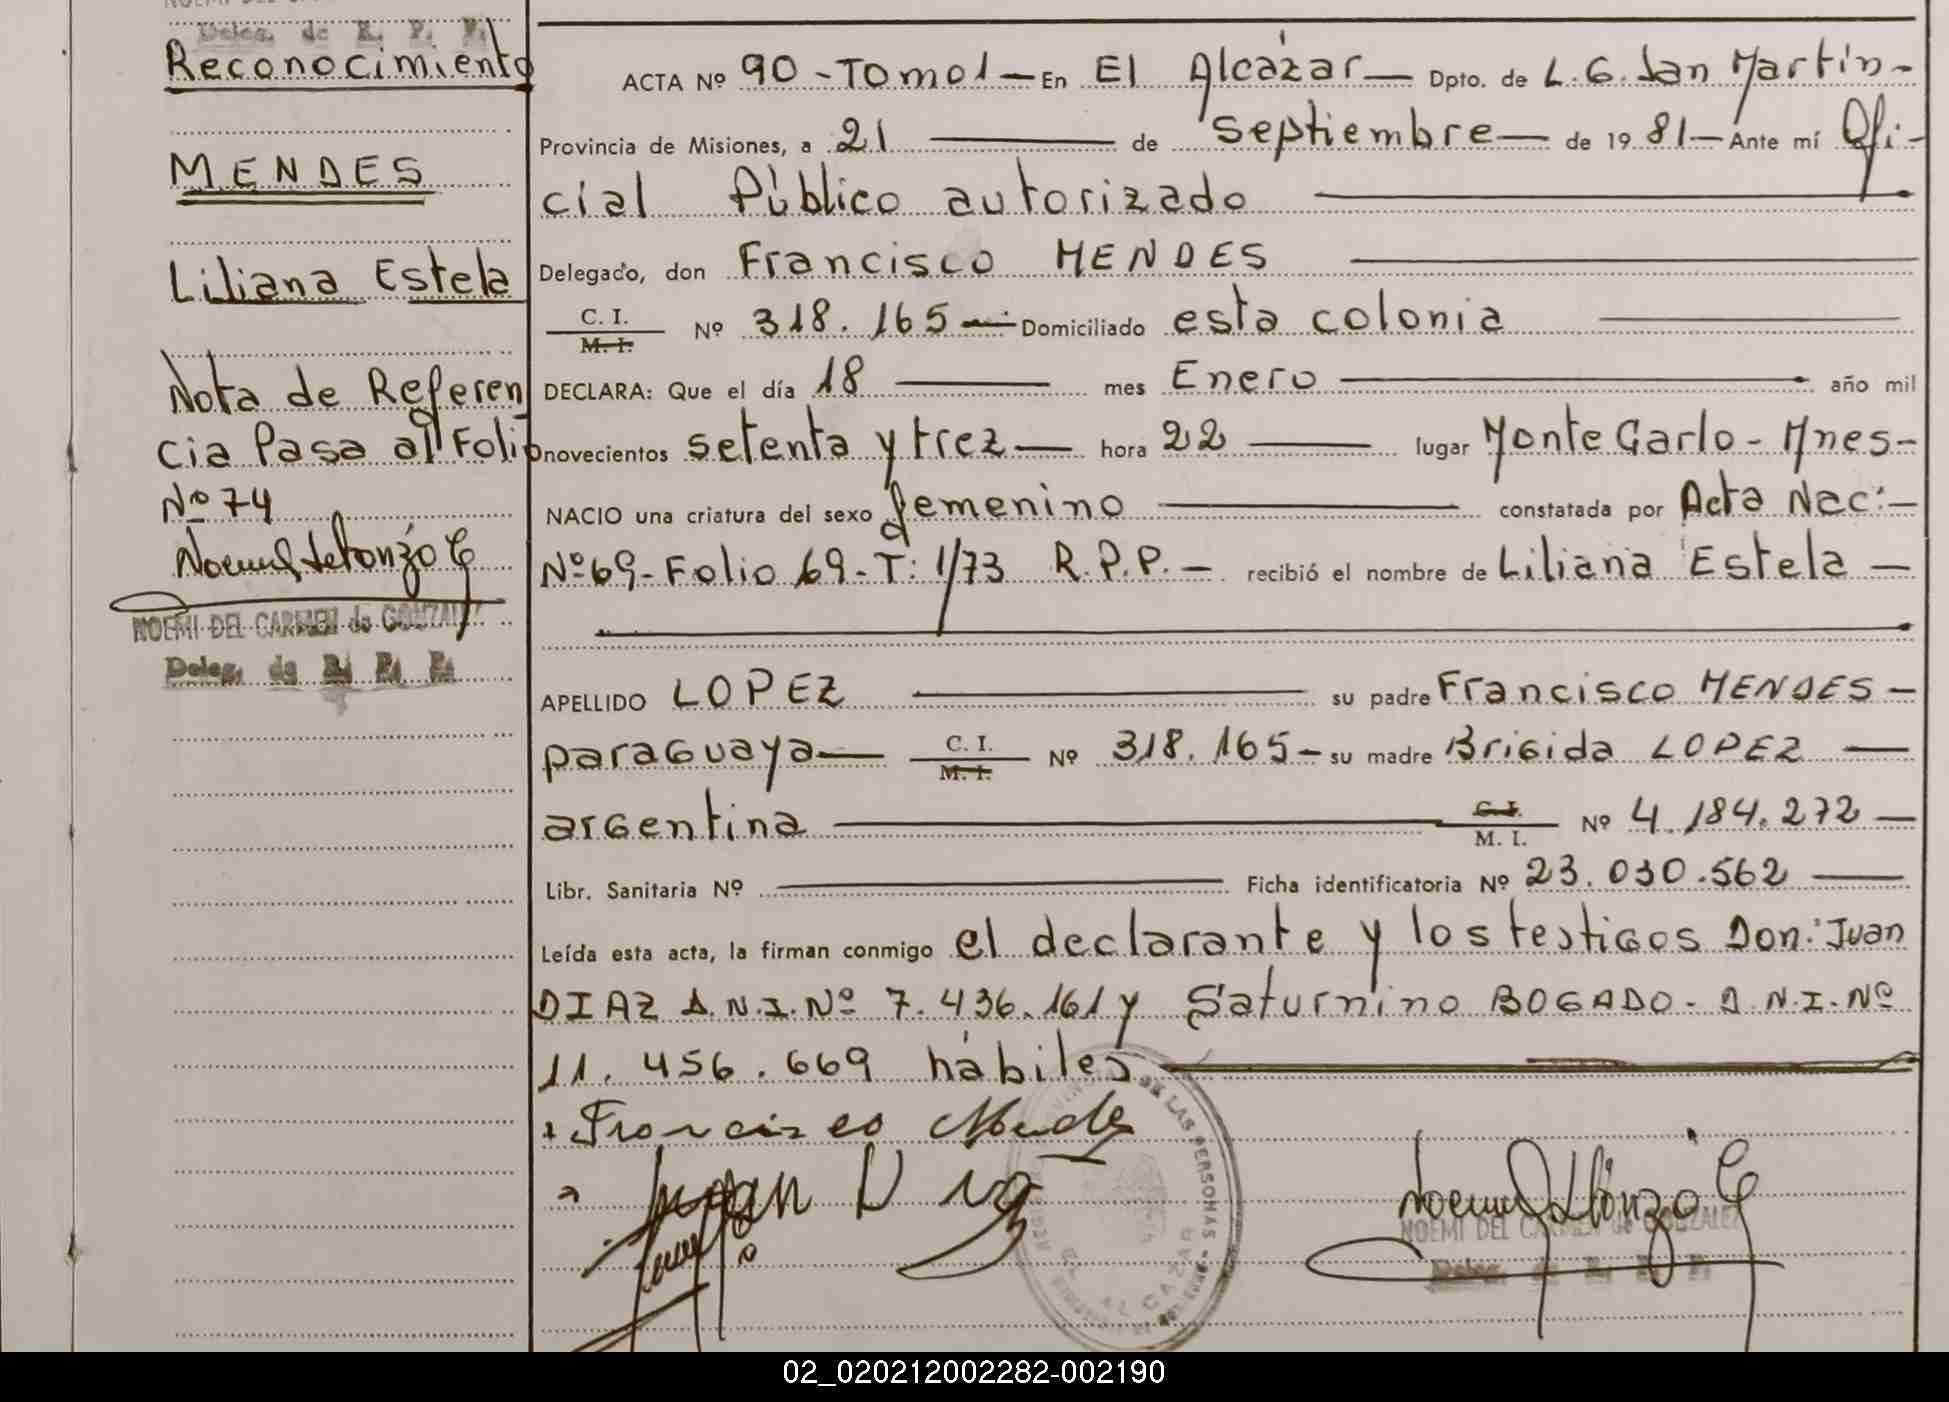 Deleg. de R. P. P.
Reconocimiento
MENDES
Liliana Estela
Nota de Referen
cia Pasa al Folio
Nº 74
NOEMI DEL CARMEN de GONZALEZ
Deleg. de R. P. P.
ACTA Nº 90 - Tomo 1 — En El Alcázar — Dpto. de L. G. San Martín -
Provincia de Misiones, a 21 — de Septiembre — de 19 81 — Ante mí Ofi-
cial Público autorizado —
Delegado, don Francisco MENDES —
C. I. M. I. Nº 318.165 — Domiciliado esta colonia —
DECLARA: Que el día 18 — mes Enero — año mil
novecientos setenta y trez — hora 22 — lugar Monte Carlo - Mnes -
NACIO una criatura del sexo femenino — constatada por Acta Nac: -
Nº 69 - Folio 69 - T: 1/73 R.P.P. - recibió el nombre de Liliana Estela —
APELLIDO LOPEZ — su padre Francisco MENDES -
paraguaya — C. I. M. I. Nº 318.165 - su madre Brigida LOPEZ —
argentina — C. I. M. I. Nº 4.184.272 —
Libr. Sanitaria Nº — Ficha identificatoria Nº 23.030.562 —
Leída esta acta, la firman conmigo el declarante y los testigos Don: Juan
DIAZ D.N.I. Nº 7.436.161 y Saturnino BOGADO - D.N.I. Nº
11.456.669 hábiles
Francisco Mendes
Juan Diaz
DE LAS PERSONAS
EL ALCAZAR
NOEMI DEL CARMEN de GONZALEZ
Deleg. de R. P. P.
02_020212002282-002190